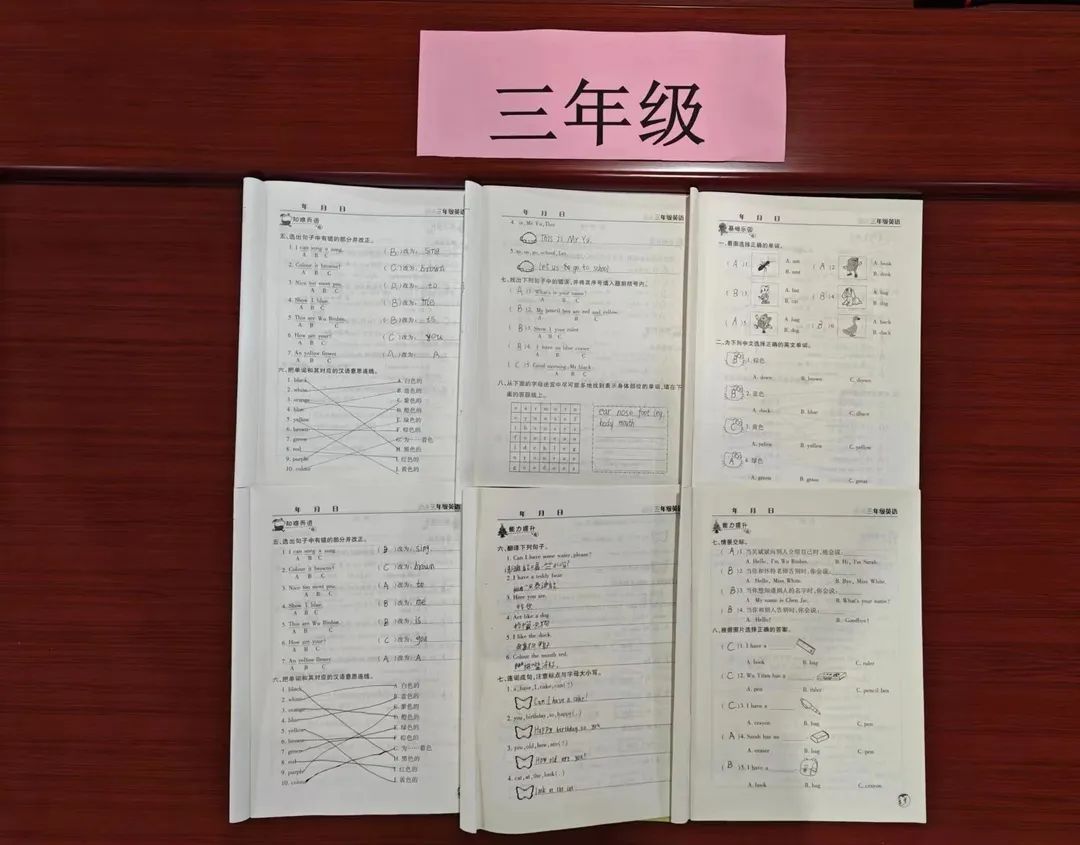 三年级
年 月 日
三年级英语
知难而进
五、选出句子中有错的部分并改正。
1. I can song a song. ( B )改为: sing
A B C
2. Colour it browns! ( C )改为: brown
A B C
3. Nice too meet you. ( A )改为: to
A B C
4. Show I blue. ( B )改为: me
A B C
5. This are Wu Binbin. ( B )改为: is
A B C
6. How are your? ( C )改为: you
A B C
7. An yellow flower. ( A )改为: A
A B C
六、把单词和其对应的汉语意思连线。
1. black A. 白色的
2. white B. 蓝色的
3. orange C. 紫色的
4. blue D. 橙色的
5. yellow E. 绿色的
6. brown F. 棕色的
7. green G. 为……着色
8. red H. 黑色的
9. purple I. 红色的
10. colour J. 黄色的
年 月 日
三年级英语
4. is, Mr Yu, This
This is Mr Yu.
5. to, us, go, school, Let
Let us to go to school
七、找出下列句子中的错误,并将其序号填入题前括号内。
( A )1. What's is your name?
A B C
( B )2. My pencil box are red and yellow.
A B C
( B )3. Show I your ruler
A B C
( B )4. I have an blue crayon
A B C
( C )5. Good morning, Ms black.
A B C
八、从下面的字母迷宫中尽可能多地找到表示身体部位的单词,填在下面的答题线上。
ear nose foot leg
body mouth
年 月 日
三年级英语
基础乐园
一、看图选择正确的单词。
( A )1. A. ant ( A )2. A. book
B. aunt B. desk
( B )3. A. bat ( B )4. A. bag
B. cat B. dog
( A )5. A. bag ( B )6. A. back
B. dog B. duck
二、为下列中文选择正确的英文单词。
B 1. 棕色
A. down B. brown C. drown
B 2. 蓝色
A. duck B. blue
C 3. 黄色
A. yelion B. yollow C. yellow
A 4. 绿色
A. green B. grass C. great
年 月 日
三年级英语
知难而进
五、选出句子中有错的部分并改正。
1. I can song a song. ( B )改为: sing.
A B C
2. Colour it browns! ( C )改为: brown
A B C
3. Nice too meet you. ( A )改为: to
A B C
4. Show I blue. ( B )改为: me
A B C
5. This are Wu Binbin. ( B )改为: is
A B C
6. How are your? ( C )改为: you
A B C
7. An yellow flower. ( A )改为: A
A B C
六、把单词和其对应的汉语意思连线。
1. black A. 白色的
2. white B. 蓝色的
3. orange C. 紫色的
4. blue D. 橙色的
5. yellow E. 绿色的
6. brown F. 棕色的
7. green G. 为……着色
8. red H. 黑色的
9. purple I. 红色的
10. colour J. 黄色的
年 月 日
三年级英语
能力提升
六、翻译下列句子。
1. Can I have some water, please?
2. I have a teddy bear.
3. Here you are.
给你
4. Act like a dog.
5. I like the duck.
6. Colour the mouth red.
七、连词成句,注意标点与字母大小写。
1. a, have, I, cake, can(?)
Can I have a cake?
2. you, birthday, to, happy(.)
Happy birthday to you
3. you, old, how, are(?)
How old are you?
4. cat, at, the, look(.)
Look at the cat.
年 月 日
三年级英语
能力提升
七、情景交际。
( A )1. 当吴斌斌向别人介绍自己时,他会说:
A. Hello, I'm Wu Binbin. B. Hi, I'm Sarah.
( B )2. 当你和怀特老师告别时,你会说:
A. Hello, Miss White. B. Bye, Miss White.
( B )3. 当你想知道别人的名字时,你会说:
A. My name is Chen Jie. B. What's your name?
( B )4. 当你和别人告别时,你会说:
A. Hello! B. Goodbye!
八、根据图片选择正确的答案。
( C )1. I have a
A. book B. bag C. ruler
( C )2. Wu Yifan has a
A. pen B. ruler C. pencil box
( C )3. I have a
A. crayon B. bag C. pen
( A )4. Sarah has an
A. eraser B. bag C. pen
( B )5. I have a
A. book B. bag C. crayon